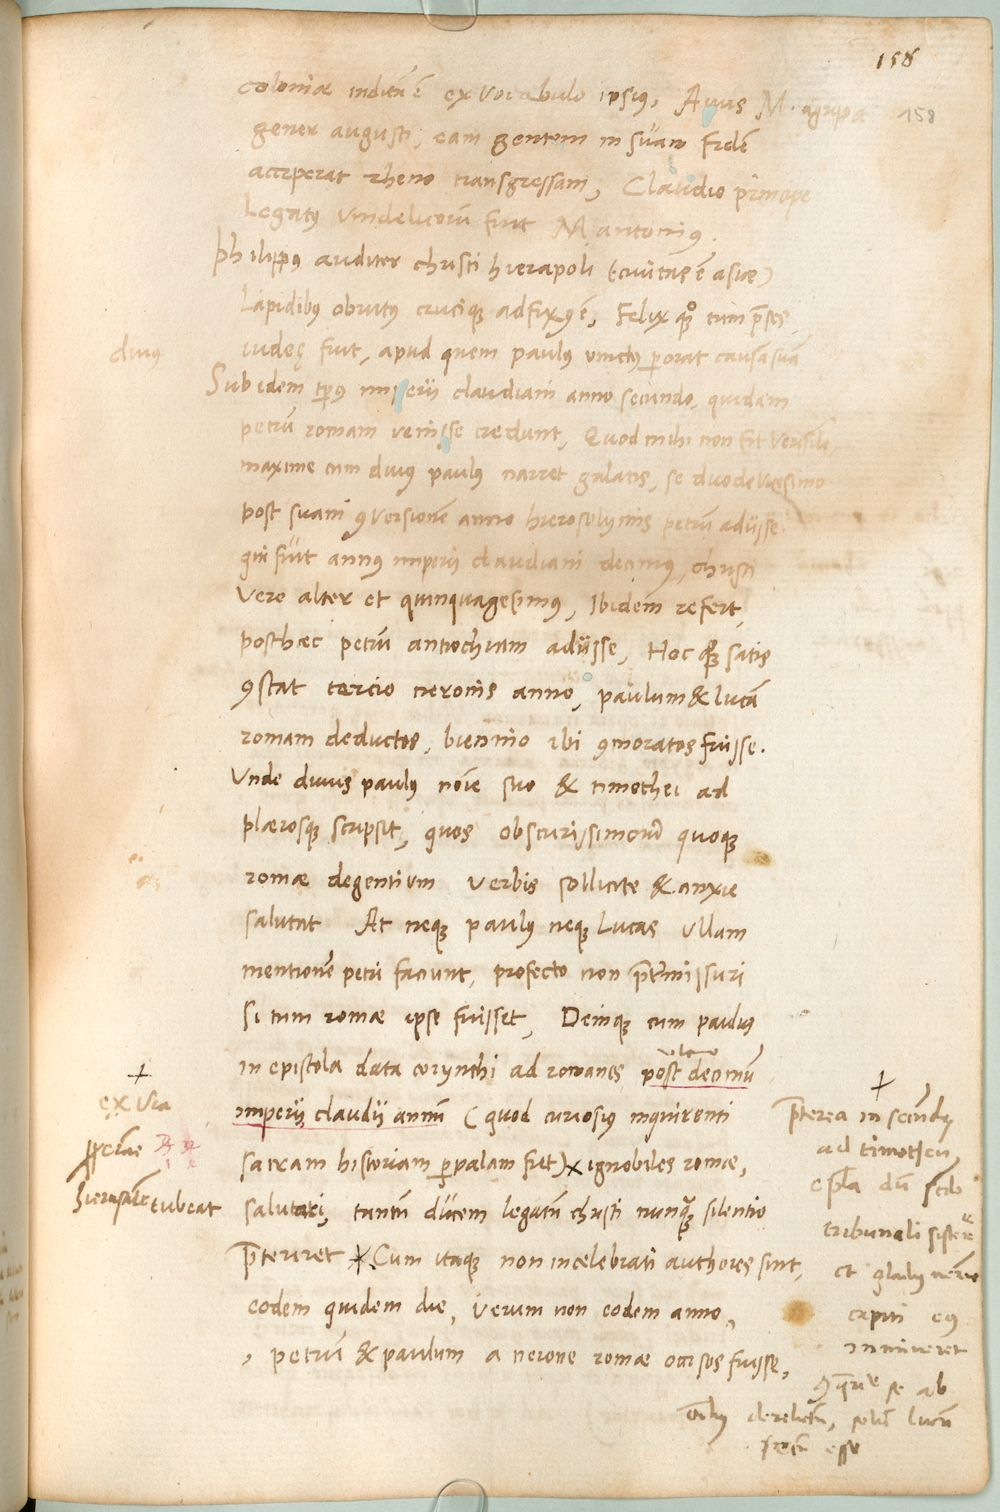 158
158
coloniæ inditũ ẽ ex vocabulo ipsius, Auus M. agrippa
gener augusti, eam gentem in suam fidẽ
acceperat rheno transgressam, Claudio principe
Legatꝰ vindelicorũ fuit M antoniꝰ.
philippꝰ auditor christi hierapoli (ciuitas ẽ asiæ)
Lapidibꝰ obrutꝰ cruciqꝫ adfixꝰ ẽ, Felix qꝫ tum p̃ses
iudeę fuit, apud quem paulꝰ vinctꝰ perorat causã suã
diuus
Sub idem tp̃ꝰ imperii claudiani anno secundo, quidam
petrũ romam venisse credunt, Quod mihi non fit verisile,
maxime cum diuus paulꝰ narret galatis, se duodeuicesimo
post suam ꝯversionẽ anno hierosolymis petrũ adiisse
qui fuit annꝰ imperii claudiani decimus, christi
vere alter et quinquagesimus, Ibidem refert,
posthæc petrũ antiochiam adiisse, Hoc qꝫ satis
ꝯstat tercio neronis anno, paulum & lucã
romam deductos, biennio ibi ꝯmoratos fuisse.
Vnde diuus paulꝰ noĩe suo & timothei ad
plærosqꝫ scripsit, quos obscurissimorũ quoqꝫ
romæ degentium verbis sollicite & anxie
salutat At neqꝫ paulus neqꝫ Lucas vllam
mentionẽ petri faciunt, profecto non p̃termissuri
si tum romæ ipse fuisset, Deinqꝫ cum paulus
in epistola data corynthi ad romanos post decimũ
imperii claudii annũ (quod curiosius inquirenti
sacram historiam perpalam fiet) ignobiles romæ,
salutari, tantũ ducem legatũ christi nunqꝫ silentio
p̃teriret Cum itaqꝫ non incelebrati authores sint,
eodem quidem die, verum non eodem anno,
petrũ & paulum a nerone romæ occisos fuisse,
ex via
eubeat
p̃terea in secũda
ad timotheũ,
epl̃a dũ
tribunali sistere
et gladiꝰ
capiti eꝰ
immineret
se ab
derelictũ, solũ lucã
secũ esse